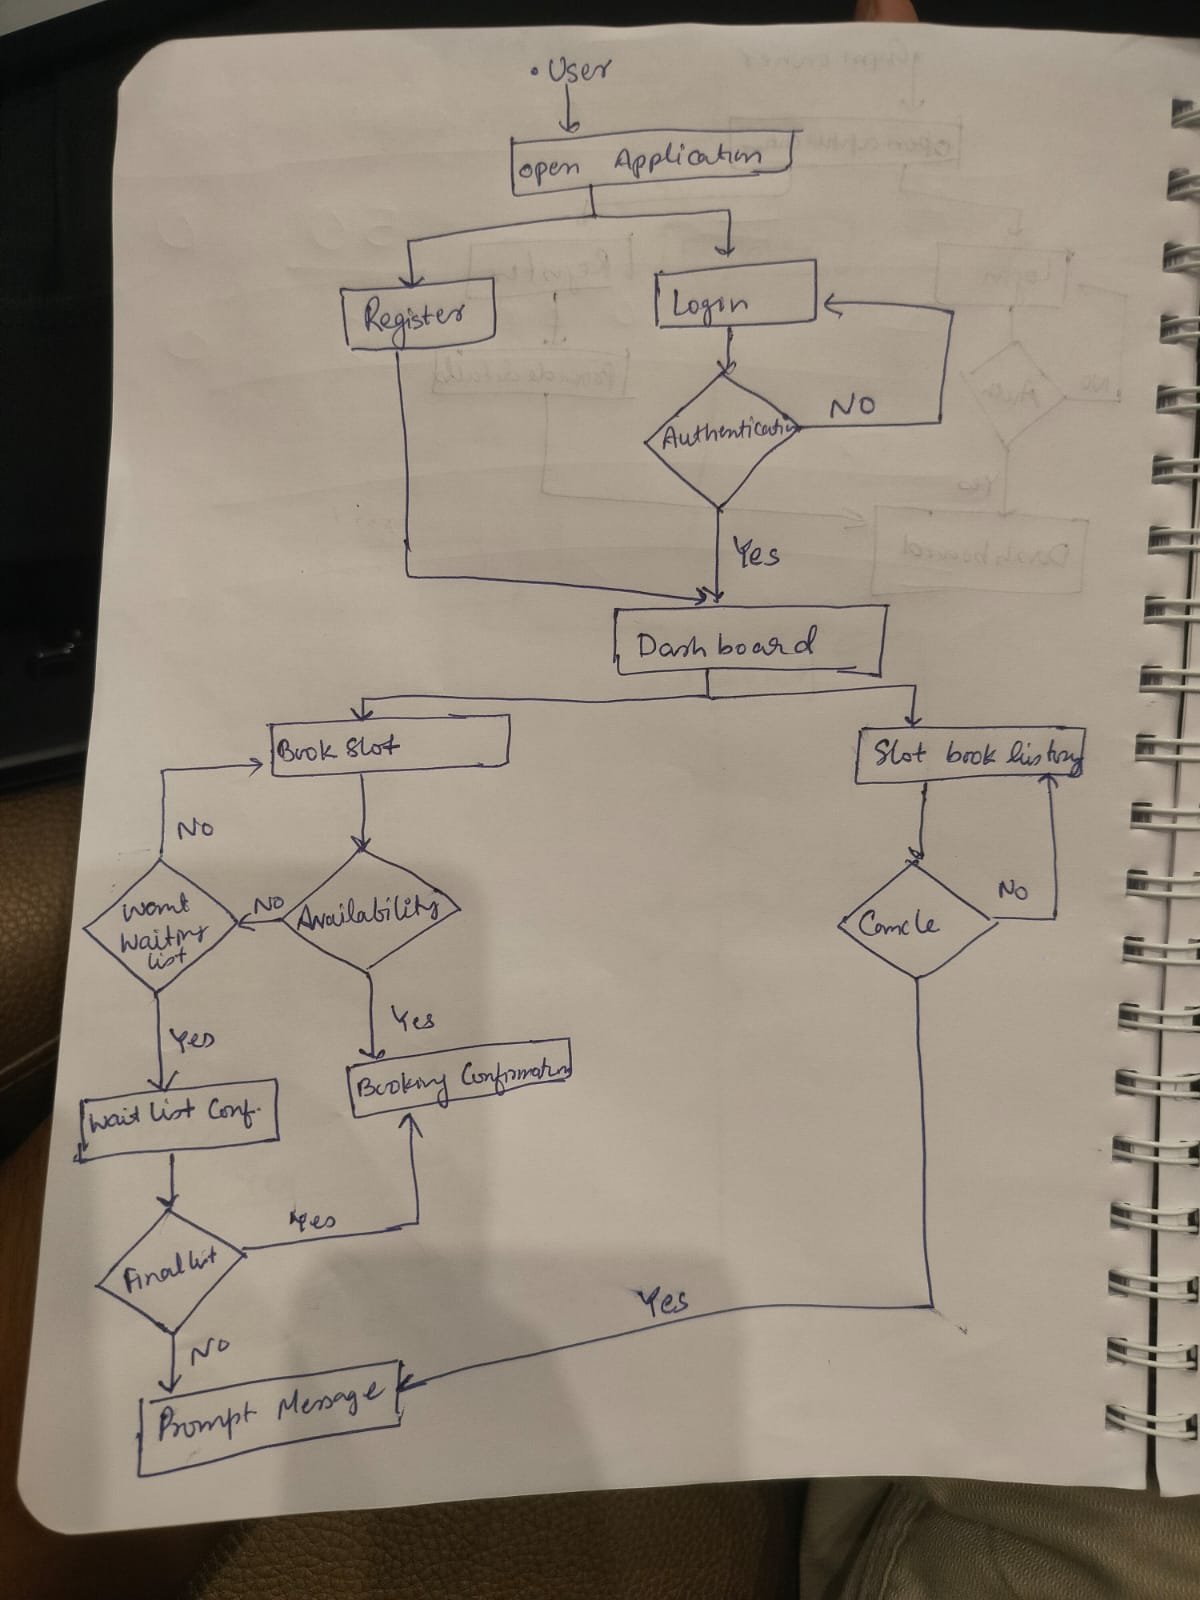 • User
open Application
Register
Login
Authentication
NO
Yes
Dashboard
Book Slot
Slot book history
No
Want
Waiting
list
No
Availability
Cancle
No
Yes
Yes
Wait list Conf.
Booking Confirmation
Final list
Yes
Yes
No
Prompt Message